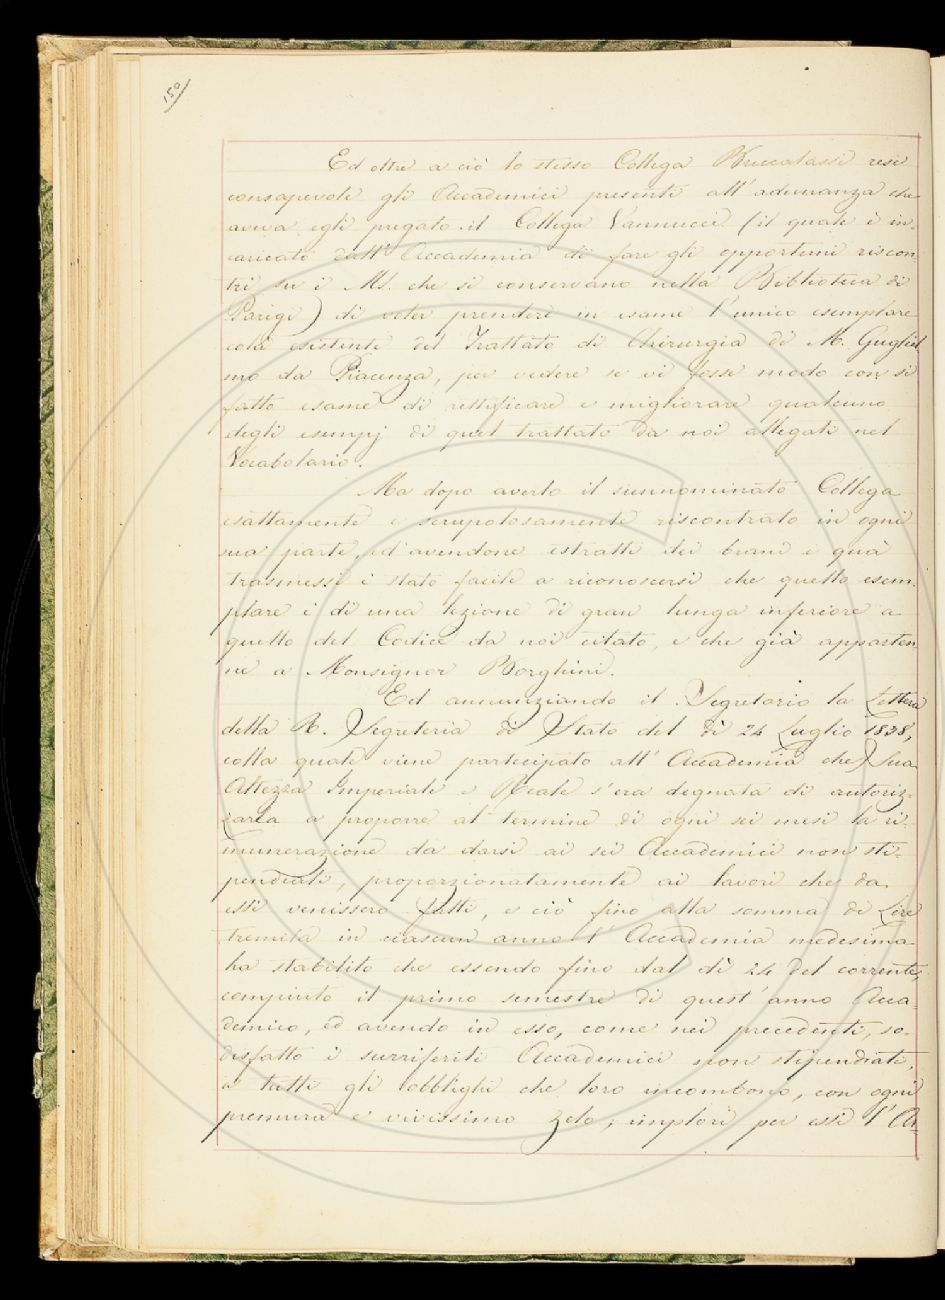 150
Ed oltre a ciò lo stesso Collega Bruscalassi rese
consapevole gli Accademici presenti all'adunanza che
aveva egli pregato il Collega Vannucci (il quale è in-
caricato dall'Accademia di fare gli opportuni riscon-
tri su i Ms. che si conservano nella Biblioteca di
Parigi) di voler prendere in esame l'unico esemplare
colà esistente del Trattato di Chirurgia di M. Guglel-
mo da Piacenza, per vedere se vi fosse modo con sì
fatto esame di rettificare e migliorare qualcuno
degli esempj di quel trattato da noi allegati nel
Vocabolario.
Ma dopo averlo il sunnominato Collega
esattamente e scrupolosamente riscontrato in ogni
sua parte, ed avendone estratti dei brani e quà
trasmessi è stato facile a riconoscersi che quello esem-
plare è di una lezione di gran lunga inferiore a
quello del Codice da noi citato, e che già apparten-
ne a Monsignor Borghini.
Ed annunziando il Segretario la Lettera
della R. Segreteria di Stato del dì 24 Luglio 1838,
colla quale viene partecipato all'Accademia che Sua
Altezza Imperiale e Reale s'era degnata di autoriz-
zarla a proporre al termine di ogni sei mesi la ri-
munerazione da darsi ai sei Accademici non sti-
pendiati, proporzionatamente ai lavori che da
essi venissero fatti, e ciò fino alla somma di Lire
tremila in ciascun anno l'Accademia medesima
ha stabilito che essendo fino dal dì 24 del corrente,
compiuto il primo semestre di quest'anno Acca-
demico, ed avendo in esso, come nei precedenti, so-
disfatto i surriferiti Accademici non stipendiati,
a tutti gli obblighi che loro incombono, con ogni
premura e vivissimo zelo, implori per essi l'Ar-